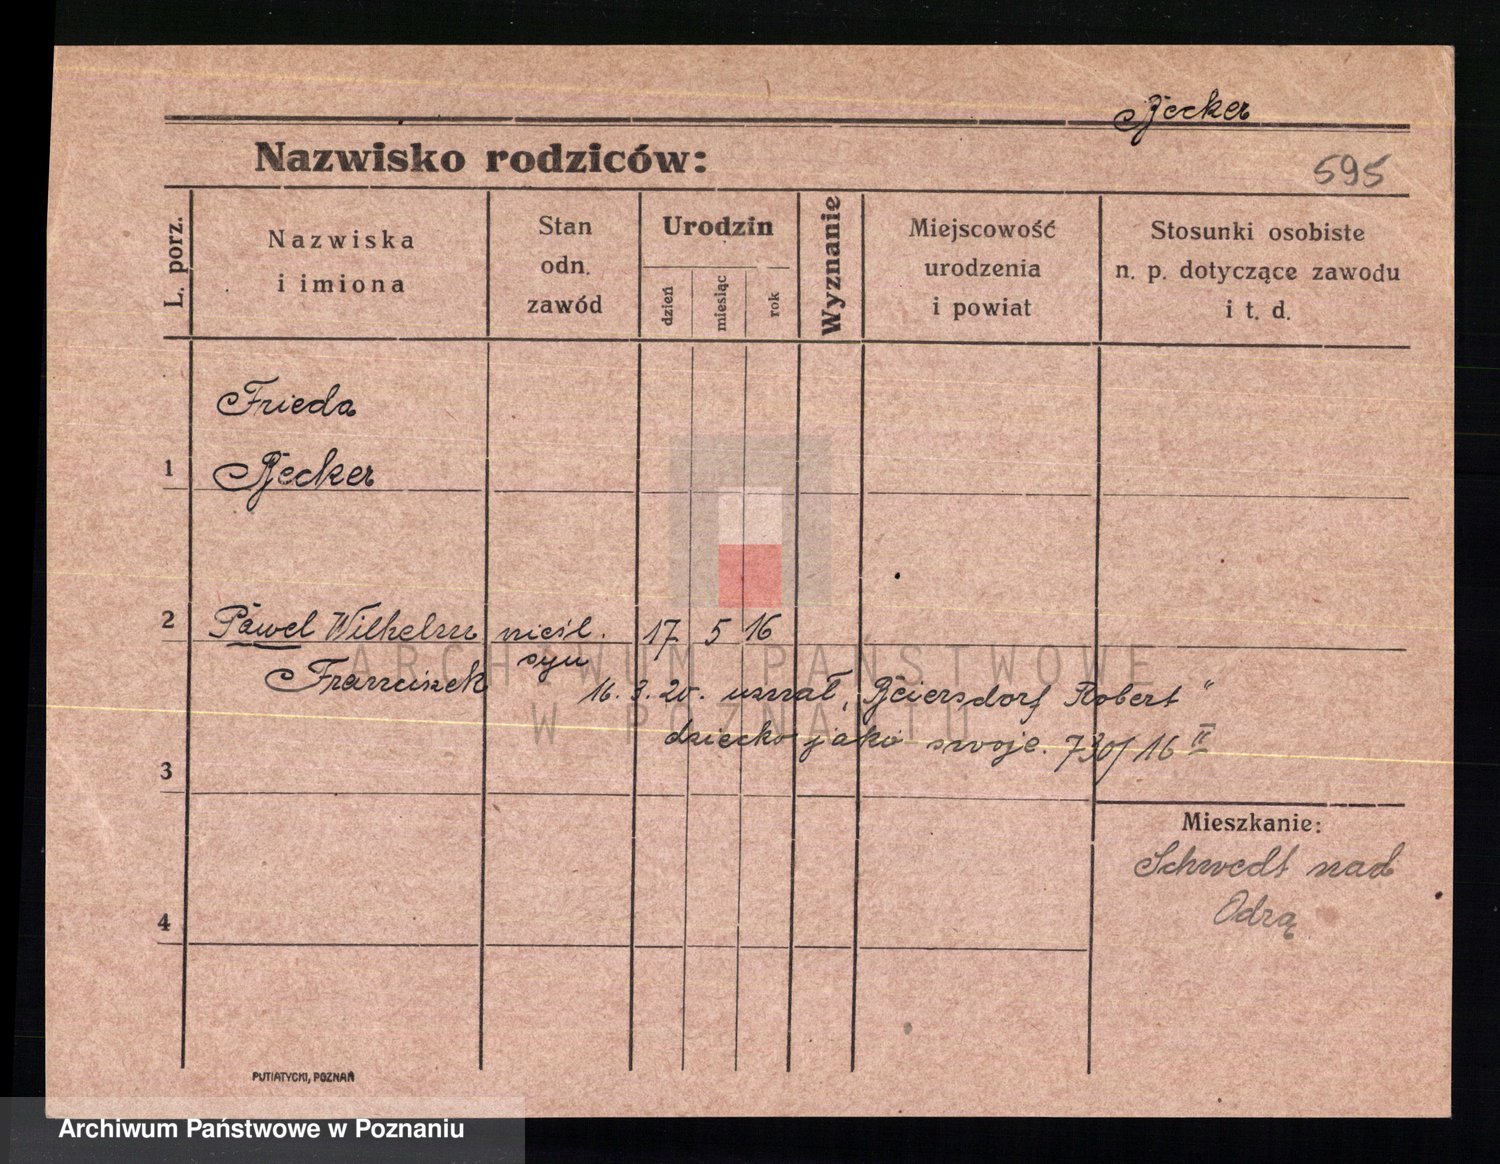 Becker
Nazwisko rodziców:
595
L. porz.
Nazwiska
i imiona
Stan
odn.
zawód
Urodzin
dzień
miesiąc
rok
Wyznanie
Miejscowość
urodzenia
i powiat
Stosunki osobiste
n. p. dotyczące zawodu
i t. d.
Frieda
1 Becker
2 Paweł Wilhelm nieśl. 17 5 16
syn
Franciszek
16. 3. 20. uznał „Beiersdorf Robert"
dziecko jako swoje. 730/16 II
3
Mieszkanie:
Schwedt nad
Odrą
4
ARCHIWUM PAŃSTWOWE
W POZNANIU
PUTIATYCKI, POZNAŃ
Archiwum Państwowe w Poznaniu